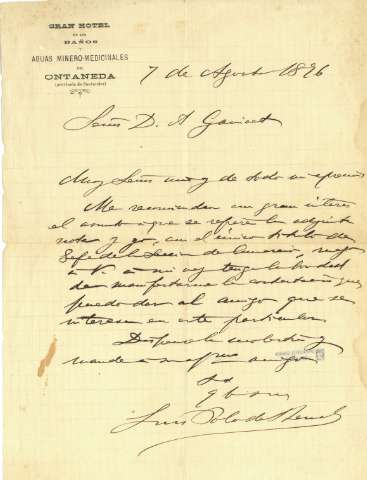 GRAN HOTEL
DE LOS
BAÑOS
Y
AGUAS MINERO-MEDICINALES
DE
ONTANEDA
(provincia de Santander)
7 de Agosto 1896
Señor D. A
Muy Señor mio y de todo mi aprecio
Me recomiendan con gran interés
el asunto a que se refiere la adjunta
nota y yo, con el único título de
Gefe de la Sección de Comercio, ruego
a V. a mi vez tenga la bondad
de manifestarme la contestación que
puedo dar al amigo que se
interesa en este particular
Dispense la molestia y
mande a su afmo amigo
q b s m
Luis Polo de Bernabé